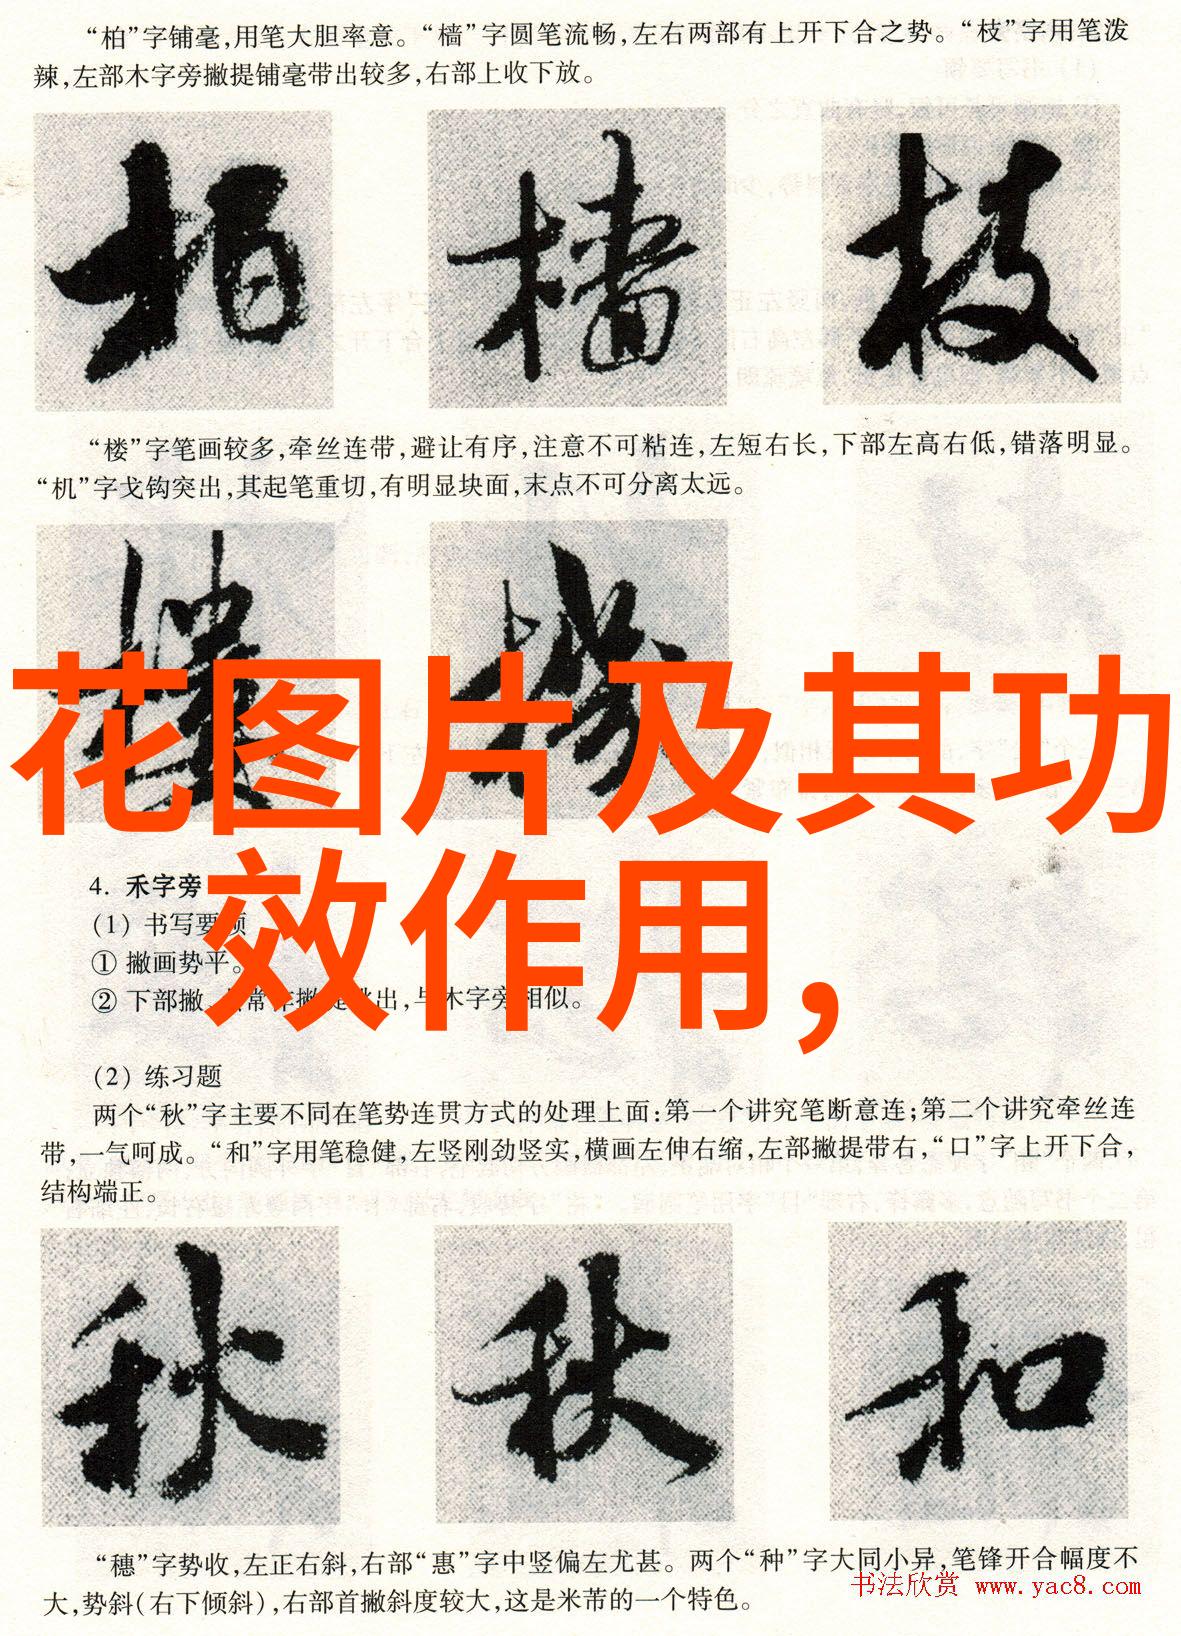 “柏”字铺毫,用笔大胆率意。“樯”字圆笔流畅,左右两部有上开下合之势。“枝”字用笔泼
辣,左部木字旁撇提铺毫带出较多,右部上收下放。
柏 樯 枝
“楼”字笔画较多,牵丝连带,避让有序,注意不可粘连,左短右长,下部左高右低,错落明显。
“机”字戈钩突出,其起笔重切,有明显块面,末点不可分离太远。
樓 機
花图片及其功
效作用,
4. 禾字旁
(1) 书写要领
① 撇画势平。
② 下部撇、出,与木字旁相似。
(2) 练习题
两个“秋”字主要不同在笔势连贯方式的处理上面:第一个讲究笔断意连;第二个讲究牵丝连
带,一气呵成。“和”字用笔稳健,左竖刚劲竖实,横画左伸右缩,左部撇提带右,“口”字上开下合,
结构端正。
秋 秋 和
“穗”字势收,左正右斜,右部“惠”字中竖偏左尤甚。两个“种”字大同小异,笔锋开合幅度不
大,势斜(右下倾斜),右部首撇斜度较大,这是米芾的一个特色。
书法欣赏 www.yac8.com